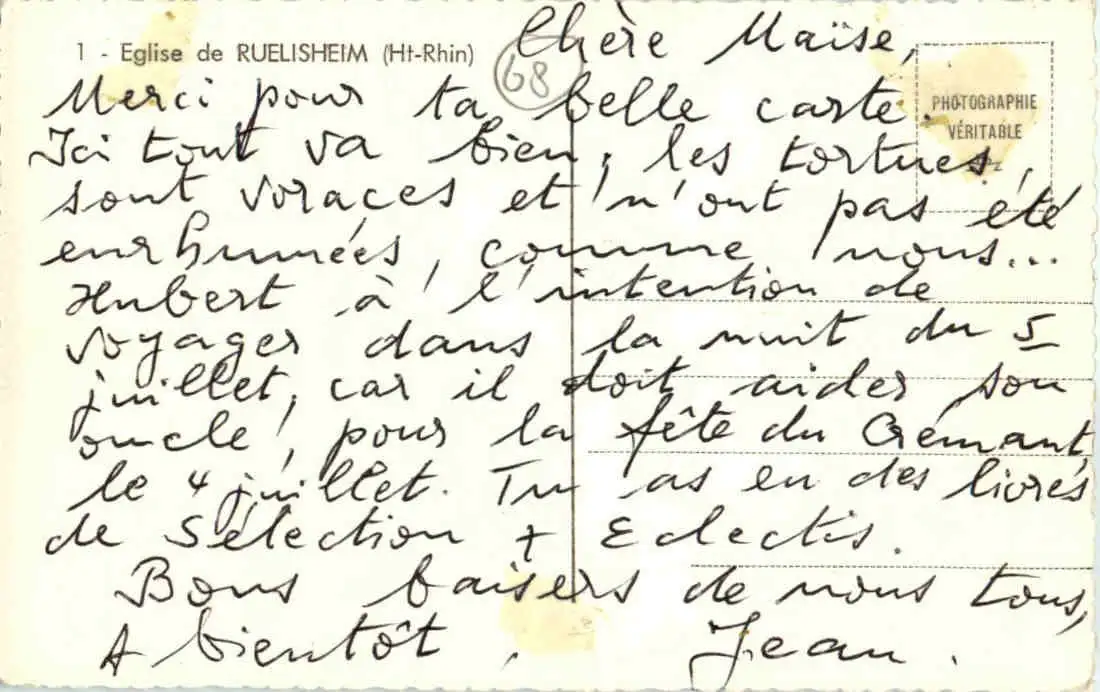 1 - Eglise de RUELISHEIM (Ht-Rhin)
68
PHOTOGRAPHIE
VÉRITABLE
Chère Maïse,
Merci pour ta belle carte.
Ici tout va bien, les tortues,
sont voraces et n'ont pas été
enrhumées, comme nous...
Hubert à l'intention de
voyager dans la nuit du 5
juillet, car il doit aider son
oncle, pour la fête du Crémant,
le 4 juillet. Tu as eu des livres
de Sélection + Eclectis.
Bons baisers de nous tous,
A bientôt, Jean.